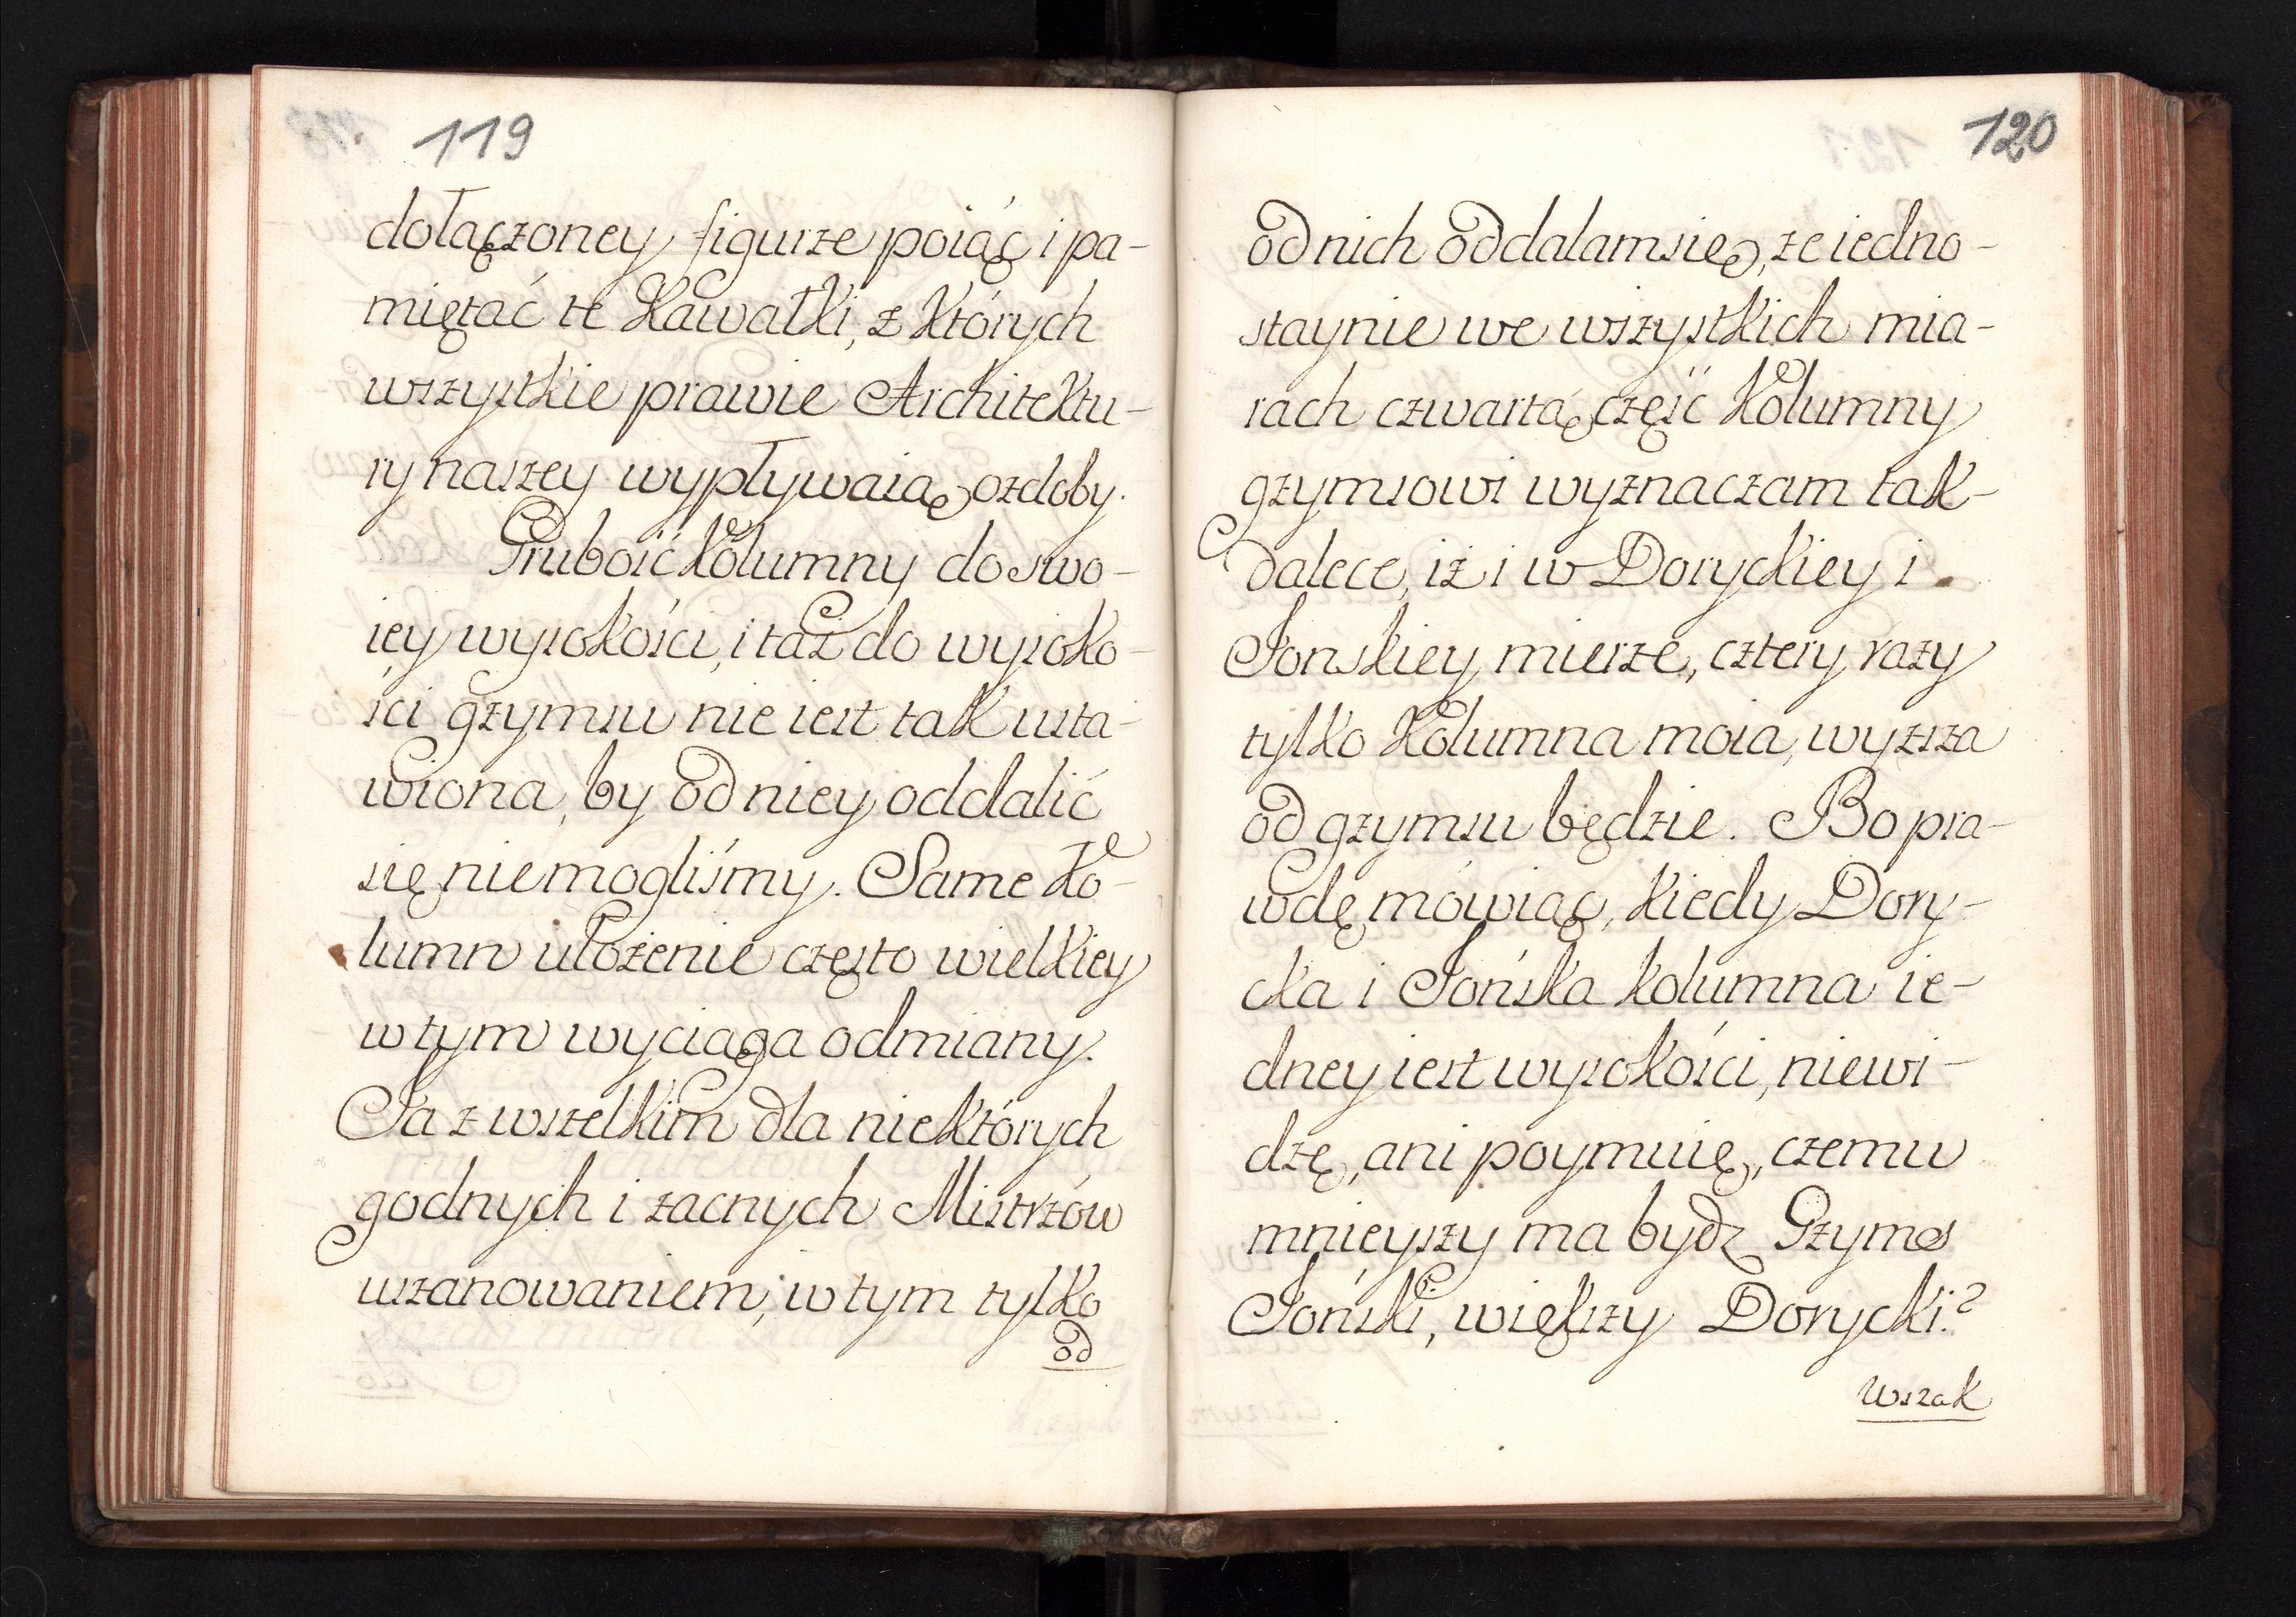 119
dołączoney figurze poiąć i pa-
miętać te Kawałki, z których
wszystkie prawie Architektu-
ry naszey wypływaią ozdoby.
Grubość Kolumny do swo-
iey wysokości, i taż do wysoko-
ści gzymsu nie iest tak usta-
wiona, by od niey oddalić
się niemogliśmy. Same Ko-
lumn ułożenie często wielkiey
w tym wyciąga odmiany.
Ja z wszelkim dla niektórych
godnych i zacnych Mistrzów
uszanowaniem, w tym tylko
od
120
od nich oddalam się, że iedno-
staynie we wszystkich mia-
rach czwartą część Kolumny
gzymsowi wyznaczam tak-
dalece, iż i w Doryckiey i
Jonskiey mierze, cztery razy
tylko Kolumna moia, wyzsza
od gzymsu będzie. Bo pra-
wdę mówiąc, kiedy Dory-
cka i Jońska kolumna ie-
dney iest wysokości, niewi-
dzę, ani poymuię, czemu
mnieyszy ma bydz Gzyms
Joński, większy Dorycki?
wszak